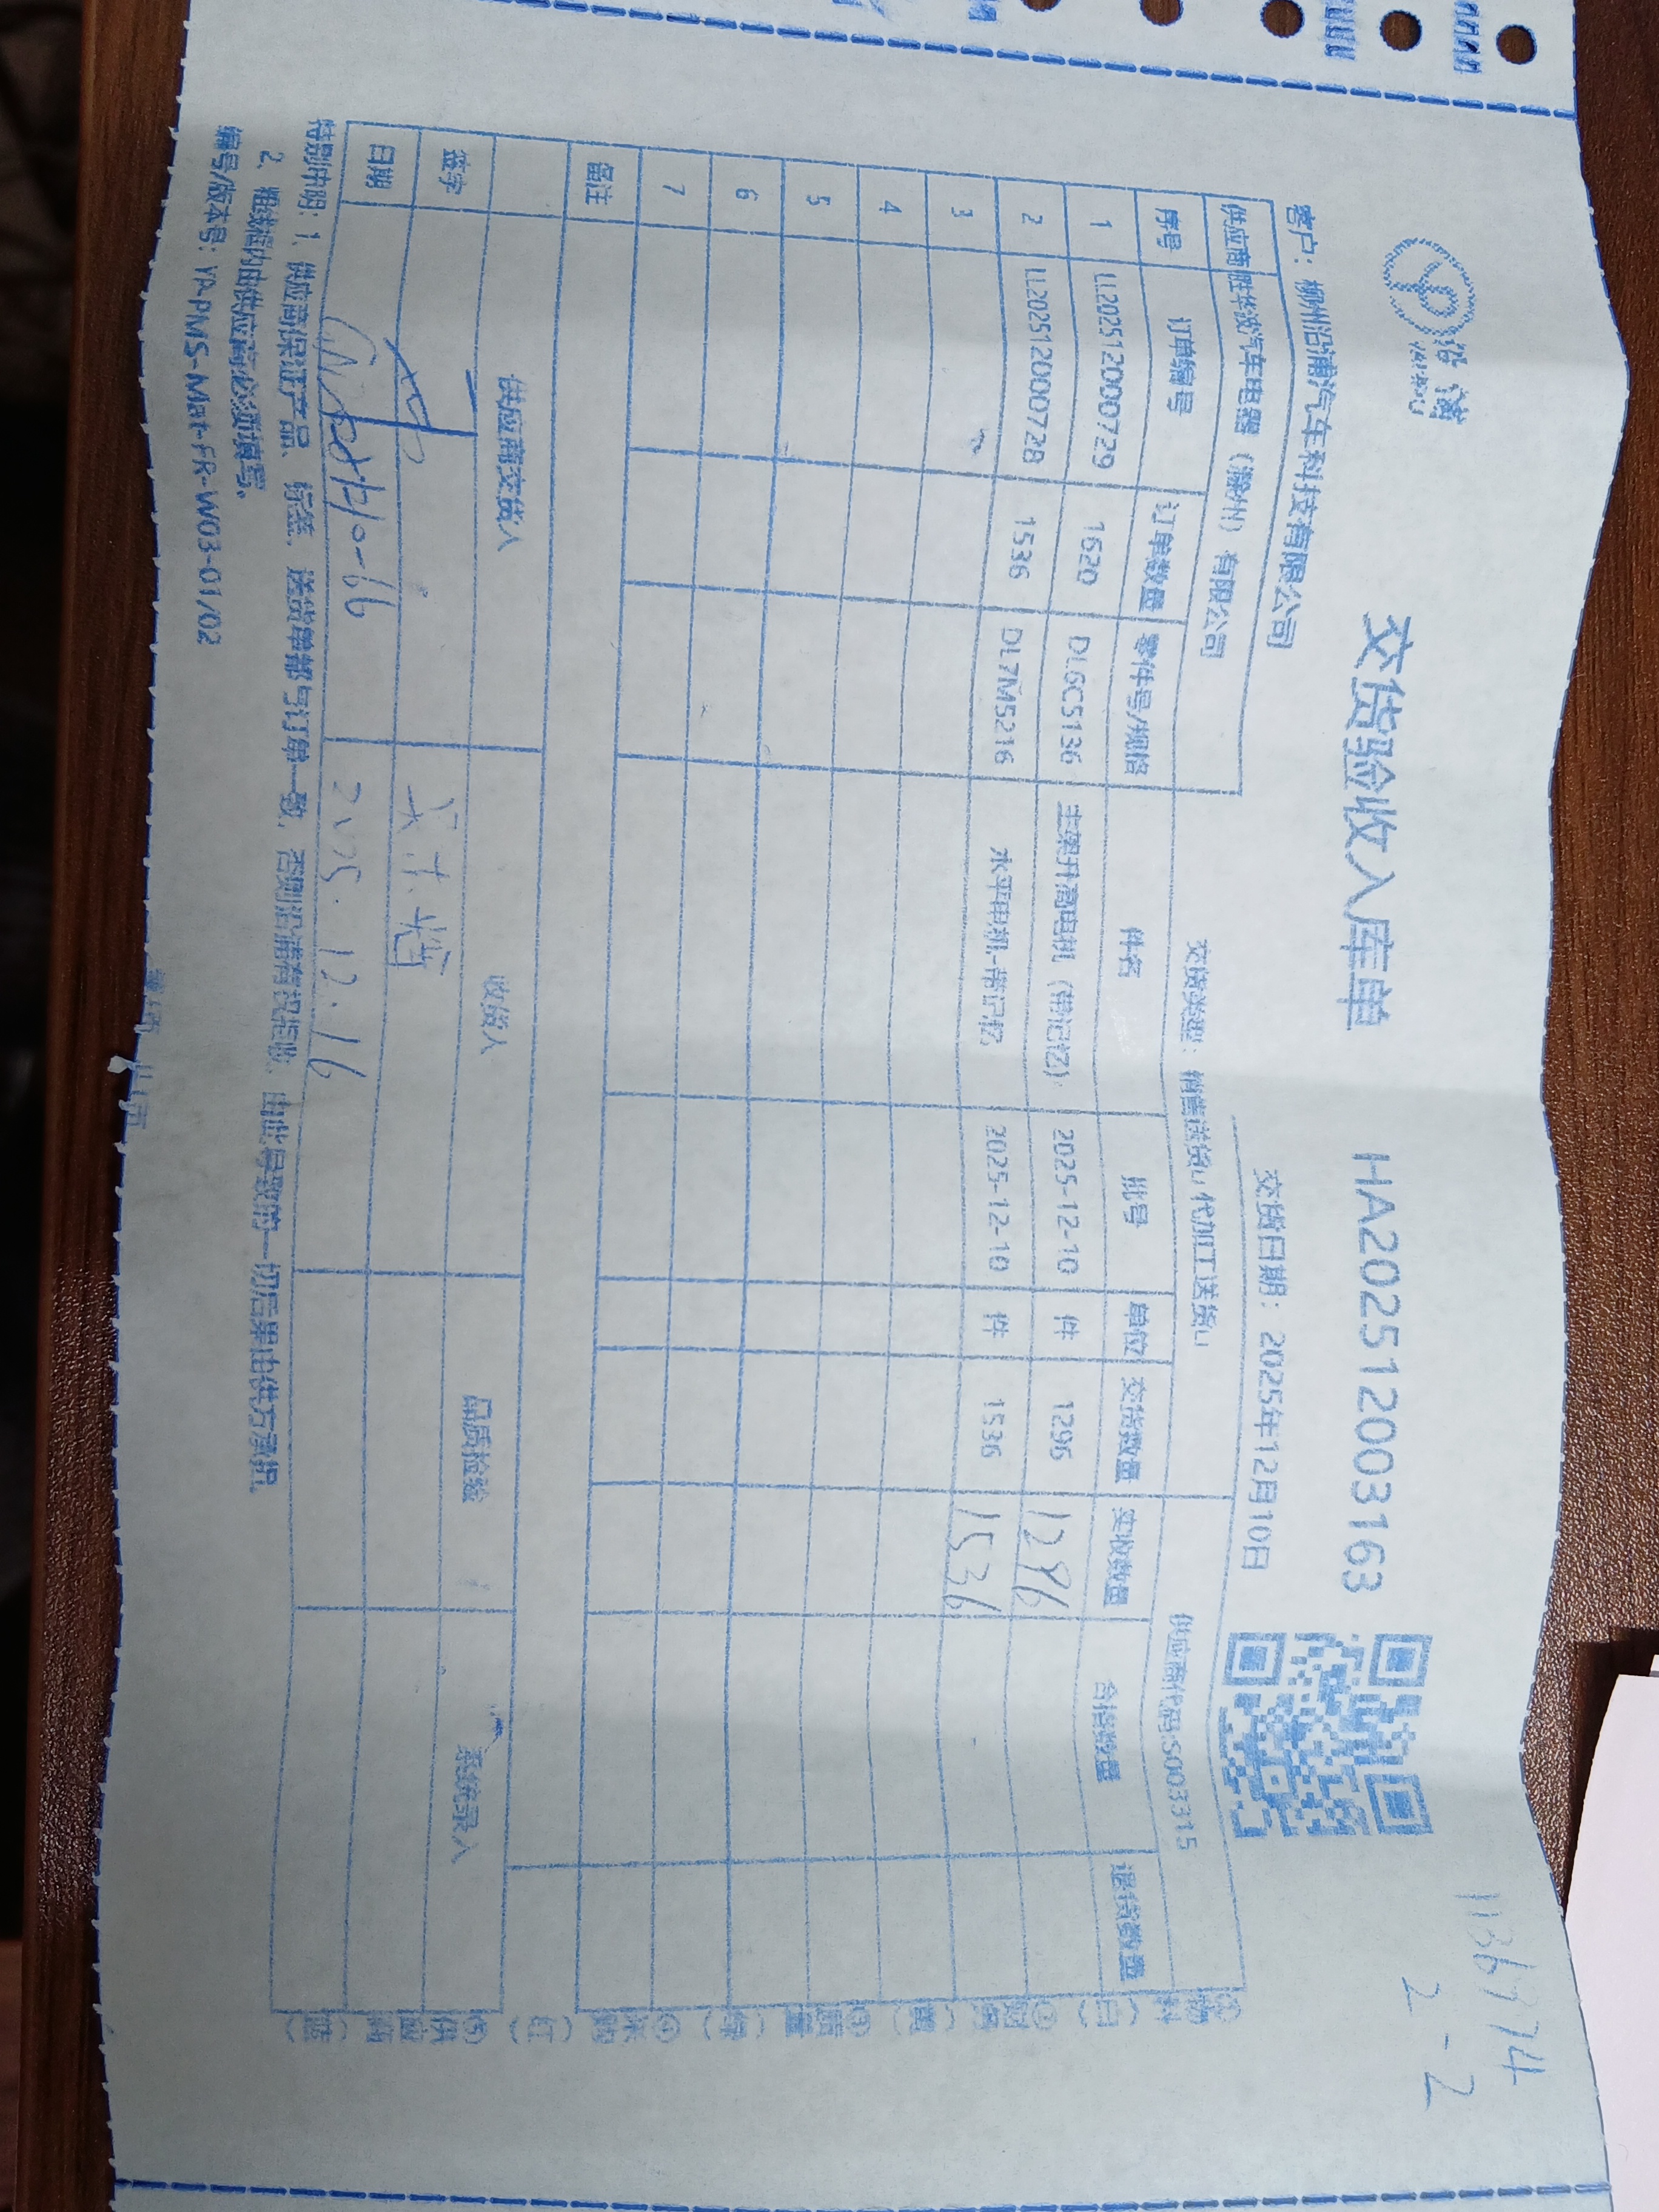 沿浦
YANPU
交货验收入库单
HA202512003163
1136974
2-2
客户：柳州沿浦汽车科技有限公司
交货日期：2025年12月10日
供应商 胜华波汽车电器（滁州）有限公司
交货类型：销售送货□ 代加工送货□
供应商代码:S003315
序号 订单编号 订单数量 零件号/规格 件名 批号 单位 交货数量 实收数量 合格数量 退货数量
1 LL202512000729 1620 DL6C5136 主架升高电机（带记忆） 2025-12-10 件 1296 1296
2 LL202512000728 1536 DL7M5216 水平电机-带记忆 2025-12-10 件 1536 1536
3
4
5
6
7
备注
供应商交货人 收货人 品质检验 系统录入
签字
日期 2025.12.16
特别申明：1、供应商保证产品、标签、送货单都与订单一致，否则沿浦有权拒收，由此导致的一切后果由供方承担。
2、粗线框内由供应商必须填写。
编号/版本号：YP-PMS-Mat-FR-W03-01/02